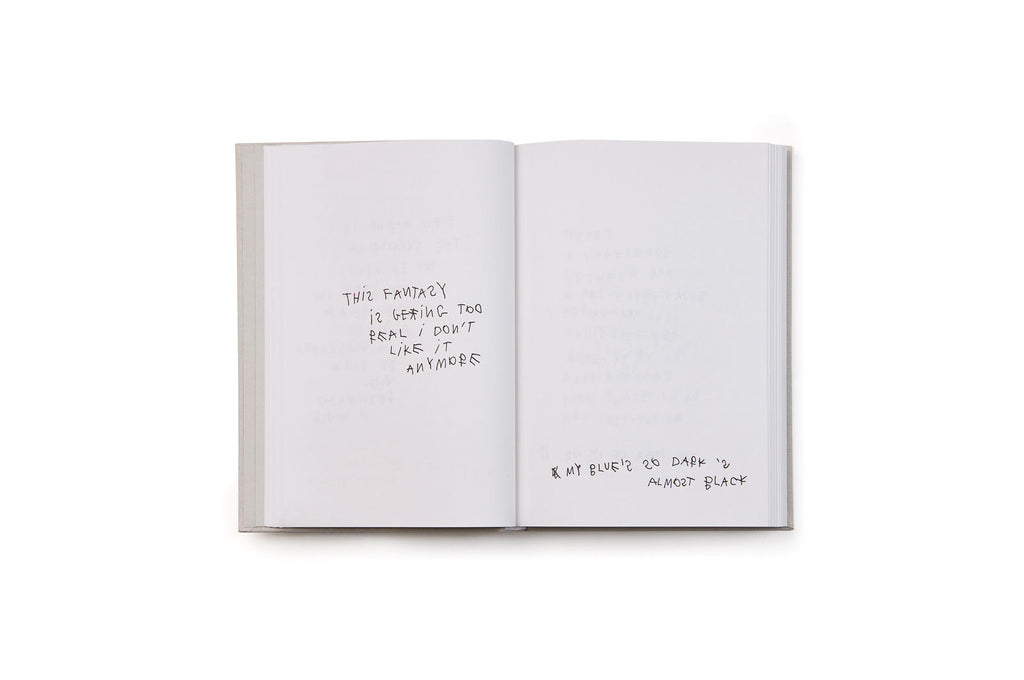 THIS FANTASY
iS GETTING TOO
REAL i DON'T
LiKE iT
ANYMORE
& MY BLUE'S SO DARK 'S
ALMOST BLACK